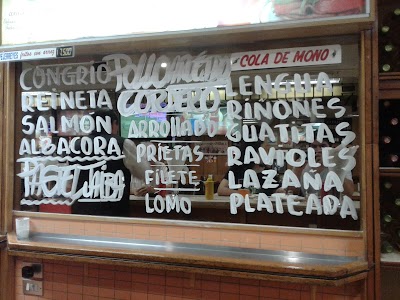 COLA DE MONO
CONGRIO
REINETA
SALMÓN
ALBACORA
PASTEL JAIBA
POLLO
CORDERO
ARROLLADO
PRIETAS
FILETE
LOMO
LENGUA
RIÑONES
GUATITAS
RAVIOLES
LAZAÑA
PLATEADA